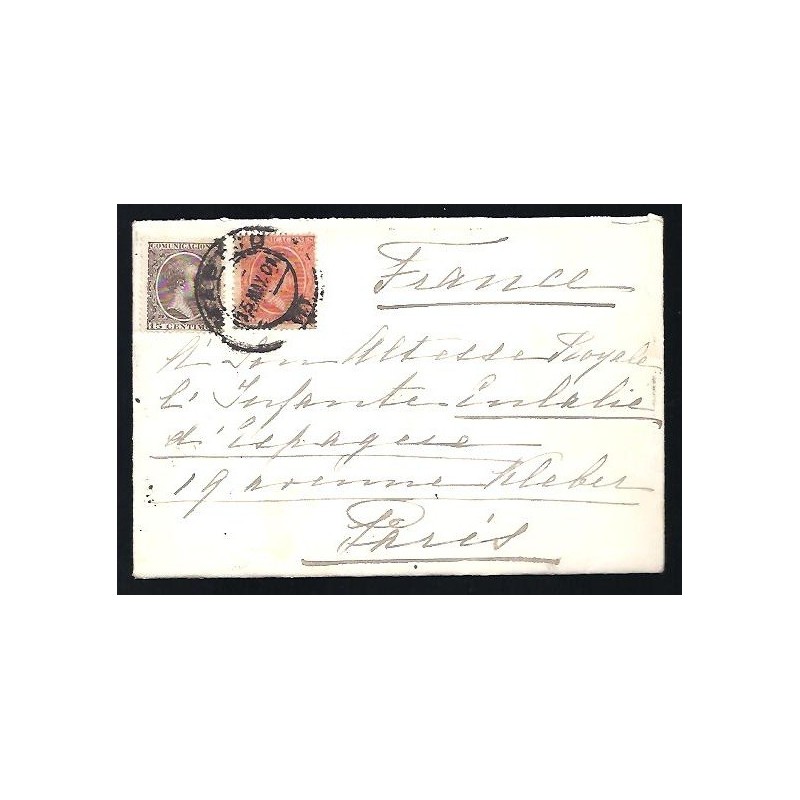 COMUNICACION
15 CENTIM
15 MAY 01
France
A Son Altesse Royale
l'Infante Eulalie
d'Espagne
19 avenue Kleber
Paris